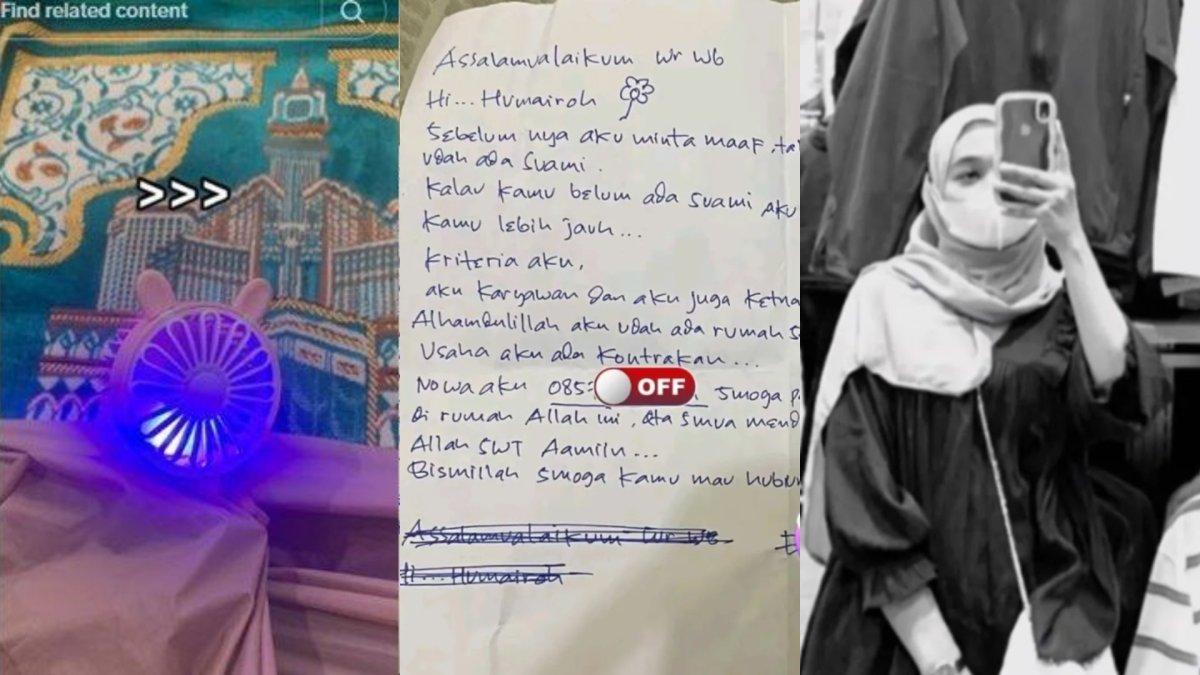 Find related content
>>>
Assalamualaikum wr wb
Hi... Humairoh
Sebelum nya aku minta maaf, ta
udah ada suami.
Kalau kamu belum ada suami aku
kamu lebih jauh...
Kriteria aku,
aku karyawan dan aku juga ketua
Alhamdulillah aku udah ada rumah s
Usaha aku ada kontrakan...
No wa aku 085 OFF Smoga p
di rumah Allah ini, kita smua mend
Allah SWT Aamiin...
Bismillah smoga kamu mau hubun
Assalamualaikum wr wb
Hi... Humairoh